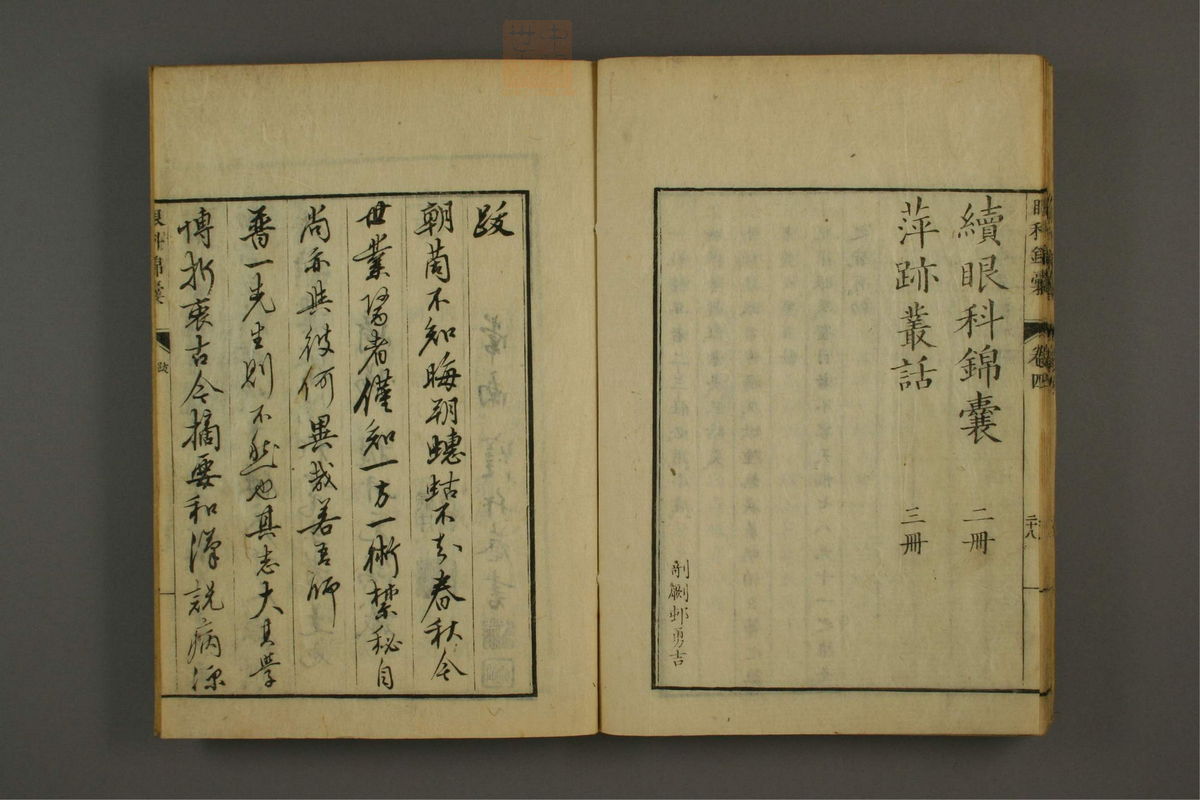 眼科錦囊 卷四 二十八
續眼科錦囊 二冊
萍跡叢話 三冊
剞劂邨勇吉
跋
朝菌不知晦朔蟪蛄不知春秋今
世業醫者僅知一方一術禁秘自
尚亦與彼何異哉若吾師
普一先生則不然也其志大其學
博折衷古今摘要和漢說病源
眼科錦囊 跋